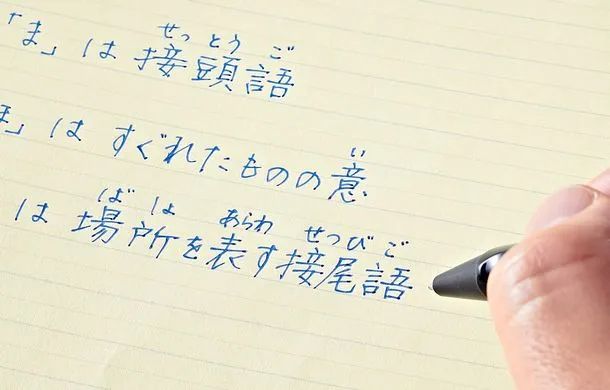 せっとうご
「ま」は接頭語
い
ほ」はすぐれたものの意
ばしょ あらわ せつびご
は場所を表す接尾語